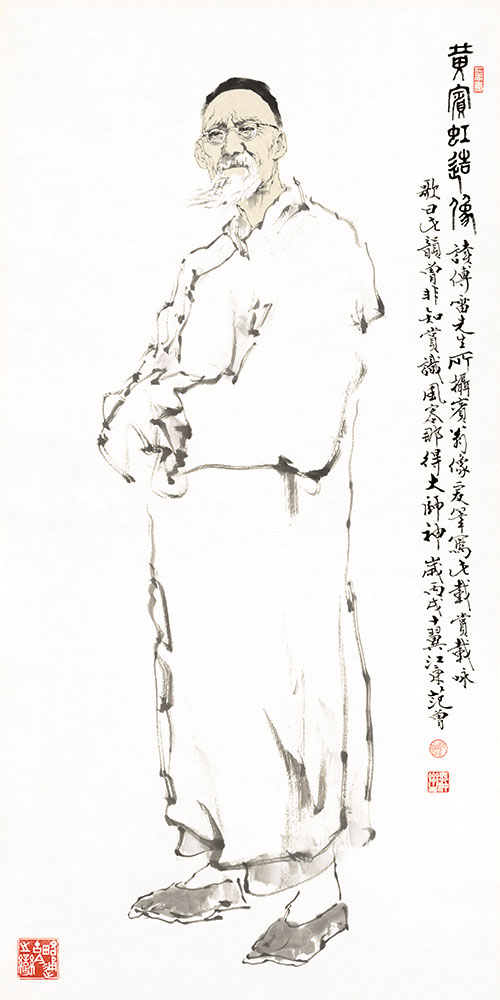 黄賓虹造像 讀傅雷先生所攝賓翁像爰筆寫此載賞載咏
歌曰此韻曾非知賞識風那得大師神 歲丙戌十翼江東范曾